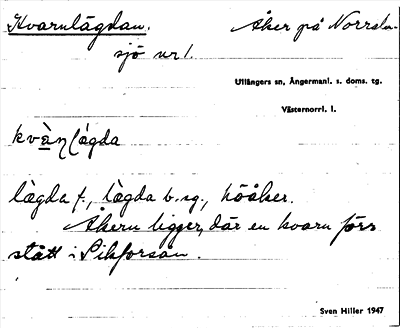 Kvarnlägdan. Åker på Norrsta-
sjö nr 1.
Ullångers sn, Ångermanl. s. doms. tg.
Västernorrl. l.
lägda f., lägda b.sg., höåker.
Åkern ligger, där en kvarn förr
stått i Sikforsån.
Sven Hiller 1947